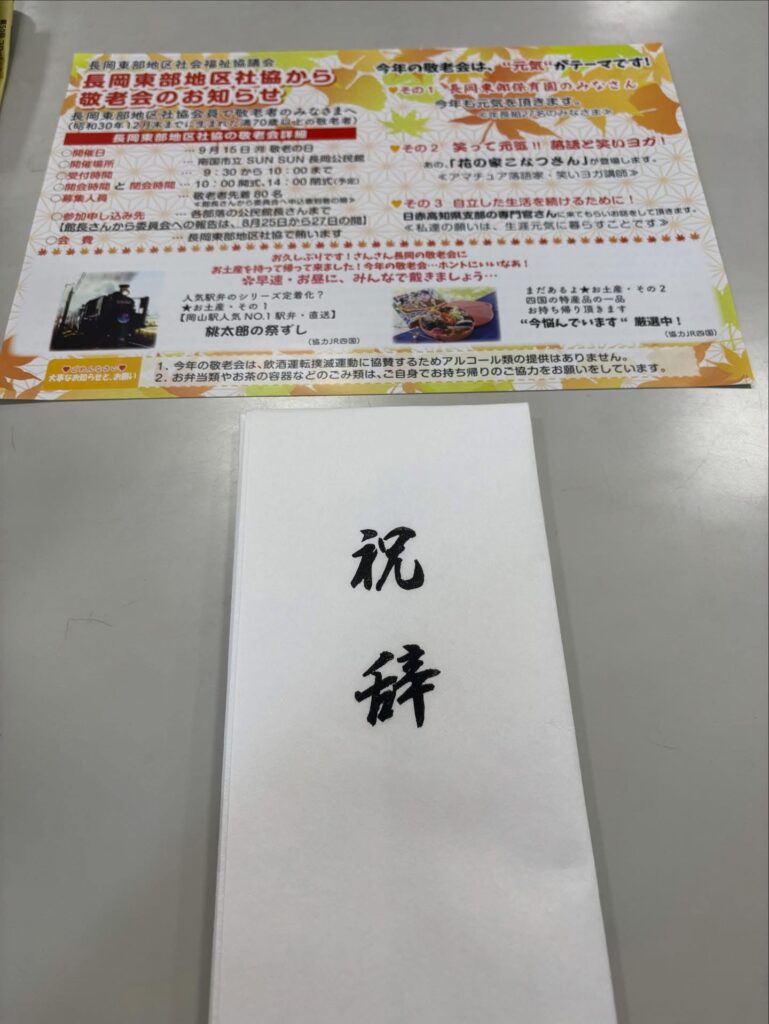 長岡東部地区社会福祉協議会
長岡東部地区社協から
敬老会のお知らせ
長岡東部地区社協会員で敬老者のみなさまへ
(昭和30年12月末までに生まれた満70歳以上の敬老者)
長岡東部地区社協の敬老会詳細
○開催日 … 9月15日 ㊊ 敬老の日
○開催場所 … 南国市立 SUN SUN 長岡公民館
○受付時間 … 9:30から10:00まで
○開会時間 と 閉会時間 … 10:00開式、14:00閉式(予定)
○募集人員 … 敬老者先着80名
○参加申し込み先 … 各部落の公民館長さんまで
【館長さんから委員会への報告は、8月25日から27日の間】
○会 費 … 長岡東部地区社協で賄います
今年の敬老会は、“元気“がテーマです!
♥その1 長岡東部保育園のみなさん
今年も元気を頂きます。
≪年長組27名のみなさま≫
♥その2 笑って元気!! 落語と笑いヨガ!
あの、「花の家こなつさん」が登場します。
≪アマチュア落語家・笑いヨガ講師≫
♥その3 自立した生活を続けるために!
日赤高知県支部の専門官さんに来てもらいお話をして頂きます。
≪私達の願いは、生涯元気に暮らすことです≫
お久しぶりです!さんさん長岡の敬老会に
お土産を持って帰って来ました!今年の敬老会…ホントにいいなあ!
✿早速・お昼に、みんなで戴きましょう…
人気駅弁のシリーズ定着化?
★お土産・その1
【岡山駅人気NO.1駅弁・直送】
桃太郎の祭ずし
(協力JR四国)
まだあるよ★お土産・その2
四国の特産品の一品
お持ち帰り頂きます
“今悩んでいます“ 厳選中!
(協力JR四国)
♥ごめんなさい♥
大事なお知らせと、お願い
1. 今年の敬老会は、飲酒運転撲滅運動に協賛するためアルコール類の提供はありません。
2. お弁当類やお茶の容器などのごみ類は、ご自身でお持ち帰りのご協力をお願いをしています。
祝辞